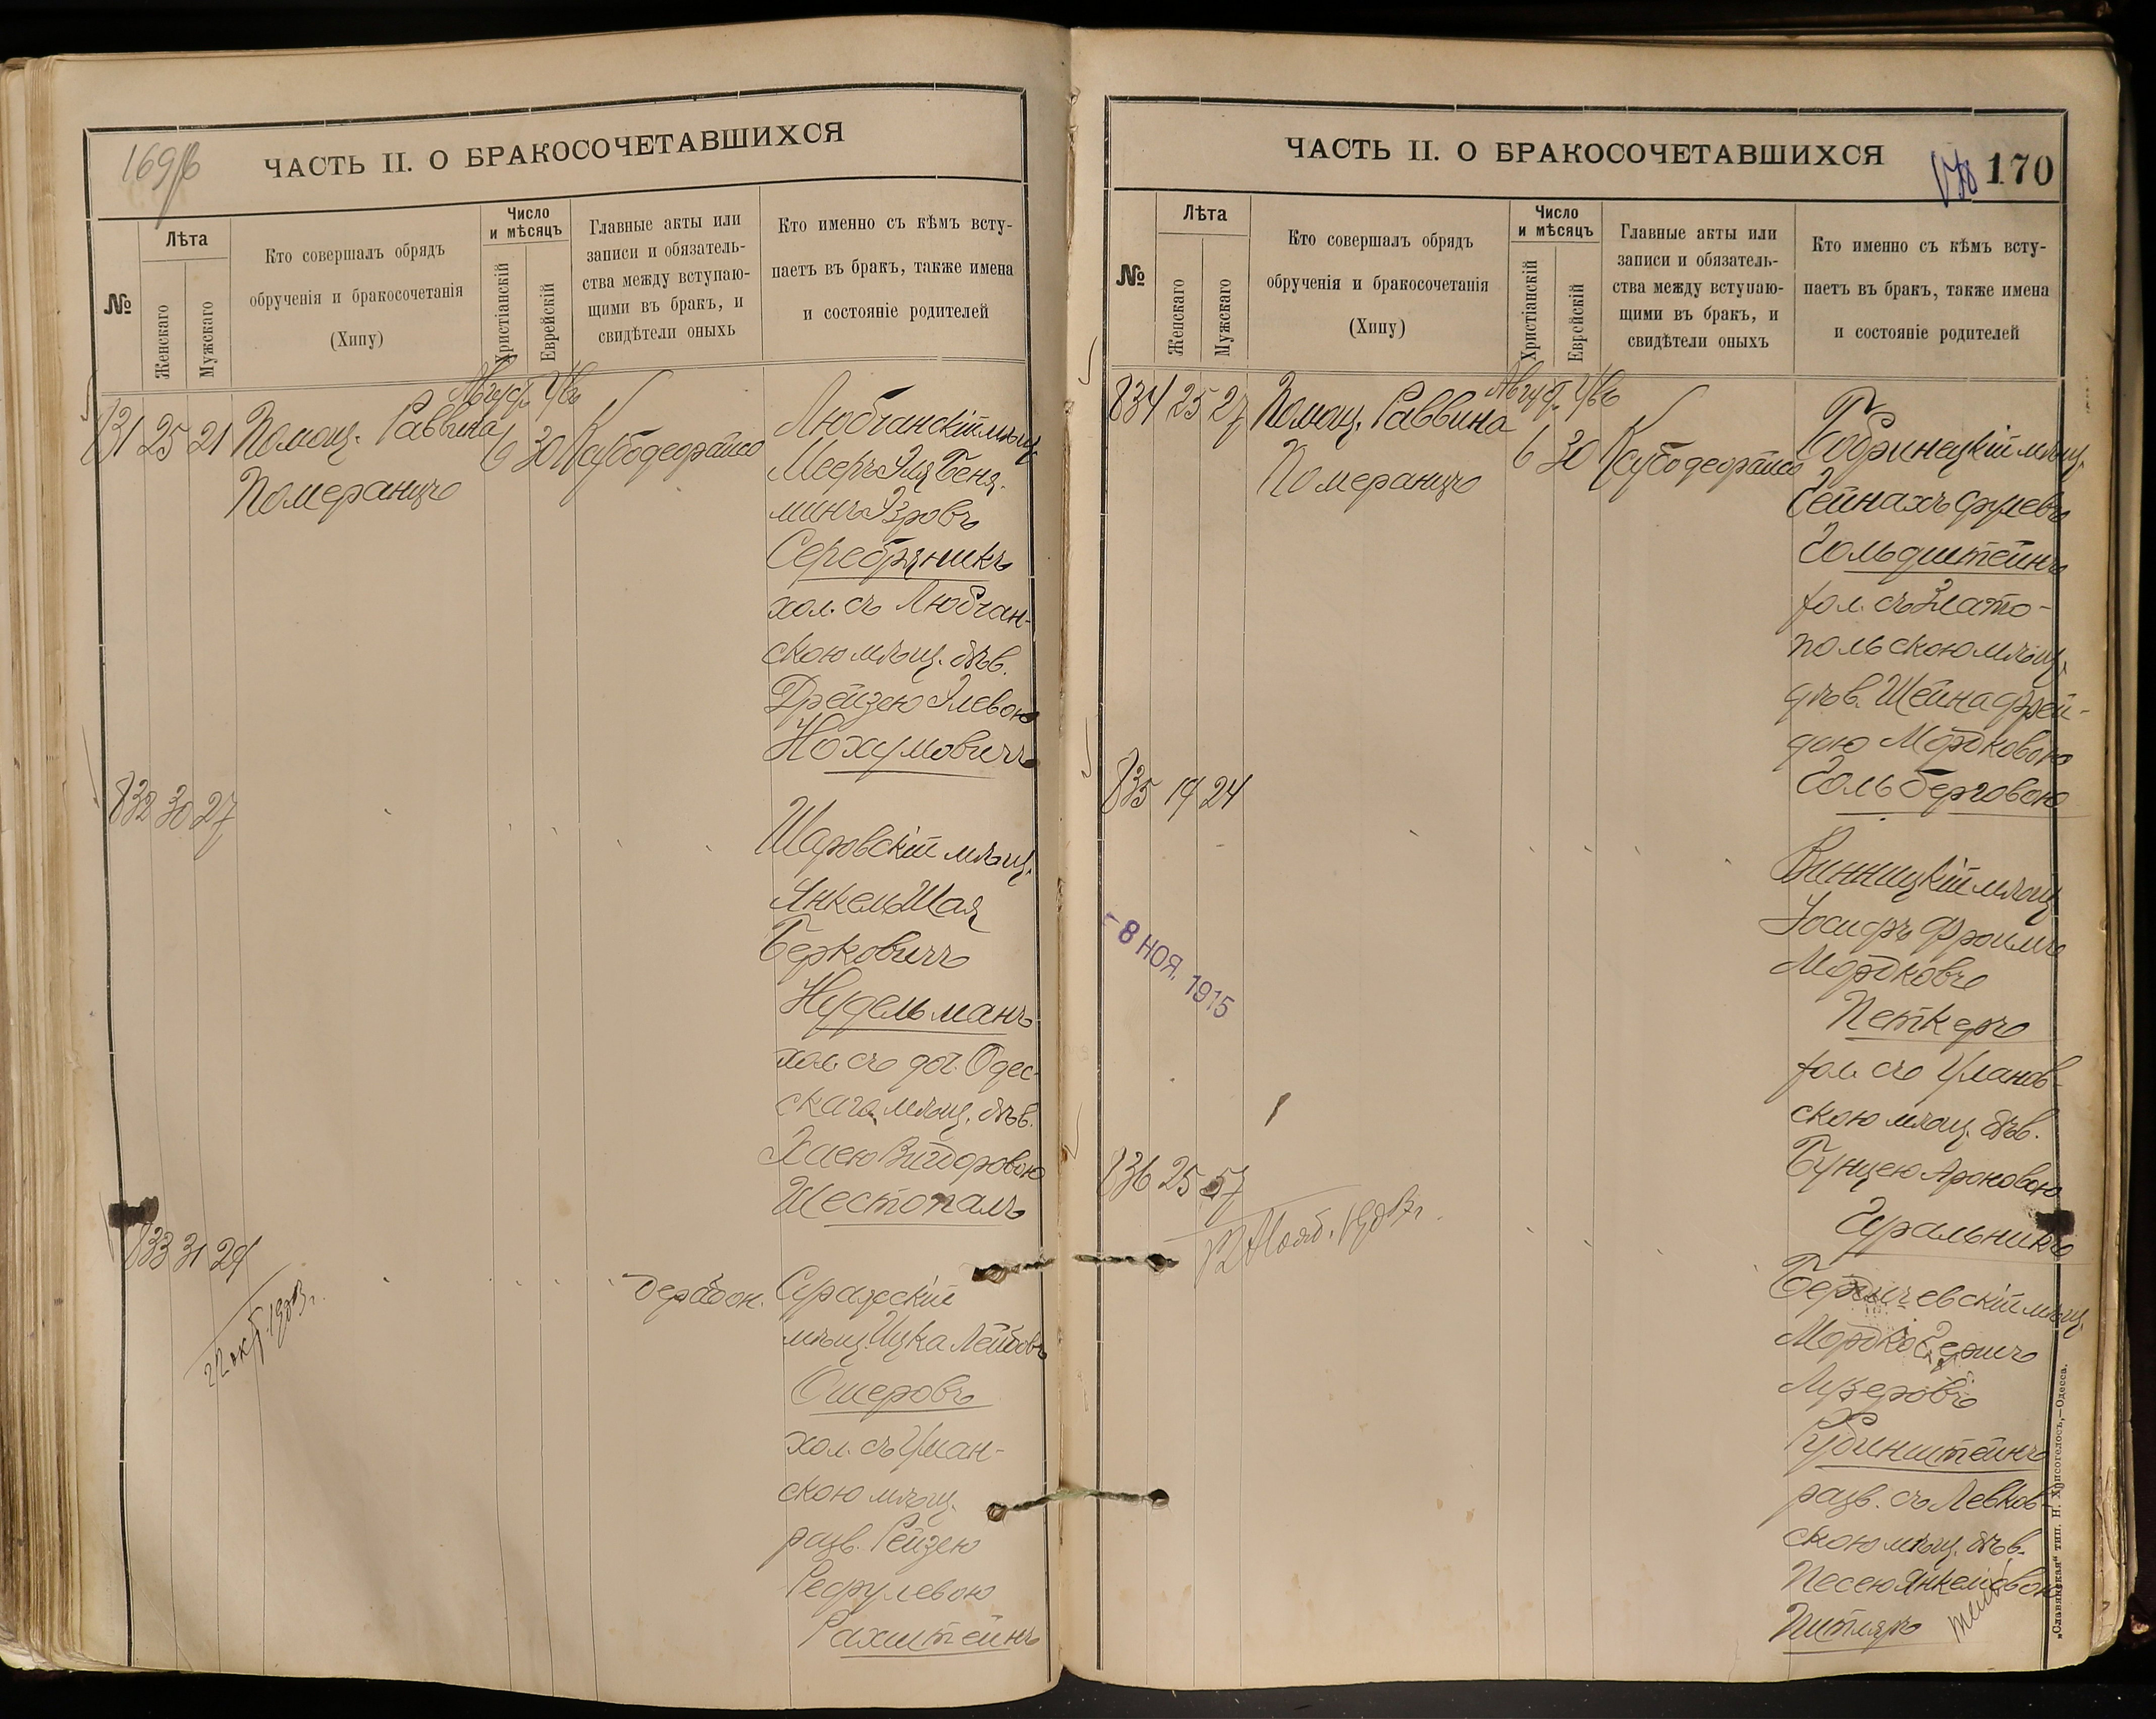 169 об
ЧАСТЬ II. О БРАКОСОЧЕТАВШИХСЯ
№
Лѣта
Женскаго
Мужскаго
Кто совершалъ обрядъ
обрученія и бракосочетанія
(Хипу)
Число
и мѣсяцъ
Христіанскій
Еврейскій
Главные акты или
записи и обязатель-
ства между вступаю-
щими въ бракъ, и
свидѣтели оныхъ
Кто именно съ кѣмъ всту-
паетъ въ бракъ, также имена
и состояніе родителей
831 25 21 Помощ. Раввина
Померанцъ
Август.
6 30
Любчанскій мѣщ.
Мееръ Эля Беня-
минъ
Серебряникъ
хол. съ Любчан-
скою мѣщ. дѣв.
Дрейзею Элевою
Нохумовичъ
832 30 27
Шаровскій мѣщ.
Янкель Шая
Берковичъ
Нудельманъ
хол. съ доч. Одес-
скаго мѣщ. дѣв.
Хаею Вигдоровою
Шестопалъ
833 31 24
22 окт. 1903 г.
Сиражскій
мѣщ. Ицка Лейбовъ
Ошеровъ
хол. съ Уман-
скою мѣщ.
разв. Рейзею
Рефулевою
Рахштейнъ
ЧАСТЬ II. О БРАКОСОЧЕТАВШИХСЯ
170
№
Лѣта
Женскаго
Мужскаго
Кто совершалъ обрядъ
обрученія и бракосочетанія
(Хипу)
Число
и мѣсяцъ
Христіанскій
Еврейскій
Главные акты или
записи и обязатель-
ства между вступаю-
щими въ бракъ, и
свидѣтели оныхъ
Кто именно съ кѣмъ всту-
паетъ въ бракъ, также имена
и состояніе родителей
834 25 27 Помощ. Раввина
Померанцъ
Август.
6 30
Бобринецкій мѣщ.
Гейнахъ
Гольдштейнъ
хол. съ Злато-
польскою мѣщ.
дѣв. Шейна Фрей-
дою Мордковою
Гольберговою
835 19 24
Винницкій мѣщ
Іосифъ Фроимъ
Мордковъ
Петкеръ
хол. съ Уланов-
скою мѣщ. дѣв.
Бунцею Ароновою
Гуральникъ
- 8 НОЯ. 1915
836 25 57
12 Нояб. 1903 г.
Бердичевскій мѣщ.
Мордко Гершъ
Лузеровъ
Рубинштейнъ
разв. съ Левков-
скою мѣщ. дѣв.
Песею Янкелевою
Питляръ
„Славянская“ тип. Н. Хрисогелосъ,—Одесса.